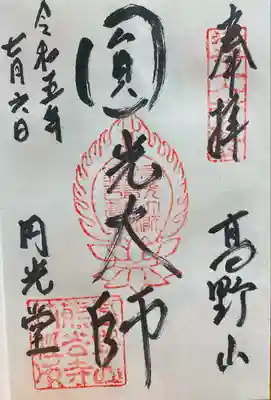 奉拝
高野山
圓光大師
円光堂
令和五年
七月六日
熊谷寺